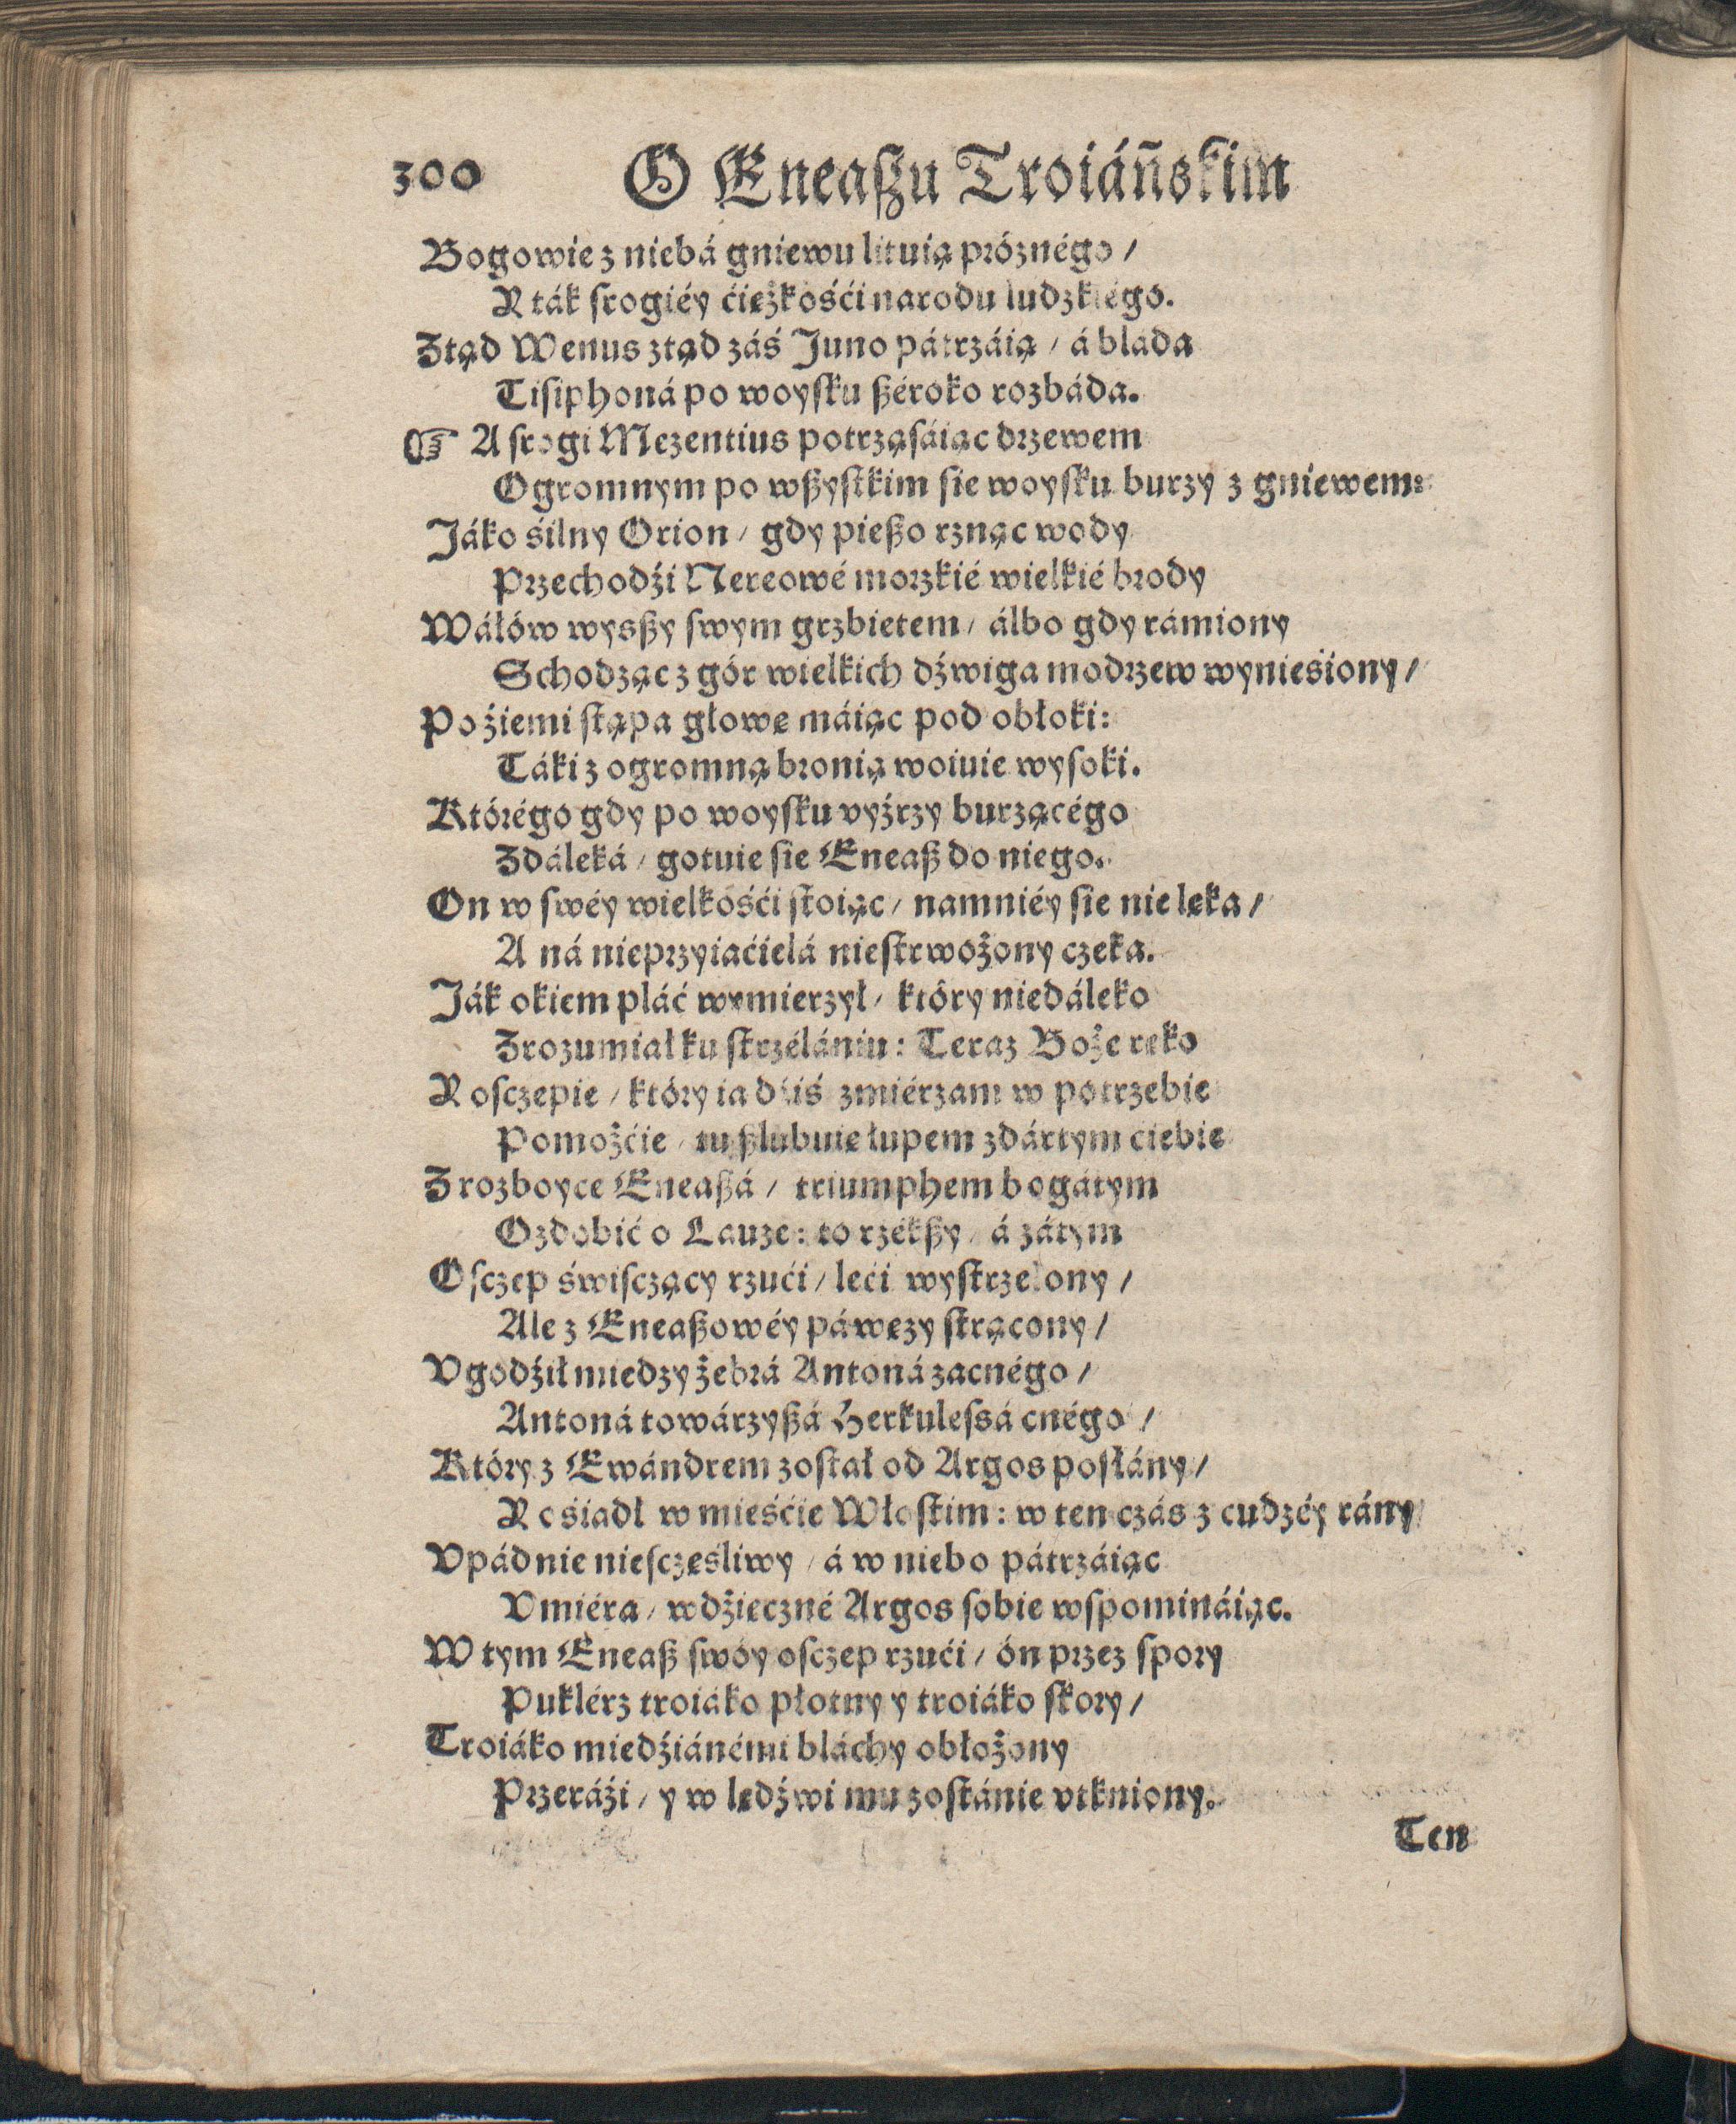 300 O Eneaſzu Troiáńſkim
Bogowie z niebá gniewu lituią próznégo /
R ták ſrogiéy ćięzkośći narodu ludzkiégo.
Ztąd Wenus ztąd záś Juno pátrzáią / á blada
Tiſiphoná po woyſku ßéroko rozbáda.
☞ A ſrogi Mezentius potrząſáiąc drzewem
Ogromnym po wßyſtkim ſie woyſku burzy z gniewem:
Jáko śilny Orion / gdy pießo rznąc wody
Przechodźi Nereowé morzkié wielkié brody
Wáłów wysßy ſwym grzbietem / álbo gdy rámiony
Schodząc z gór wielkich dźwiga modrzew wynieśiony /
Po źiemi ſtąpa głowę máiąc pod obłoki:
Táki z ogromną bronią woiuie wyſoki.
Którégo gdy po woyſku vyźrzy burzącégo
Zdáleká / gotuie ſie Eneaß do niego.
On w ſwéy wielkośći ſtoiąc / namniéy ſie nie lęka /
A ná nieprzyiaćielá nieſtrwożony czeka.
Ják okiem pláć wymierzył / który niedáleko
Zrozumiał ku ſtrzélániu: Teraz Boże ręko
R oſczepie / który ia dźiś zmiérzam w potrzebie
Pomożćie / tu ßlubuię łupem zdártym ciebie
Z rozboyce Eneaßá / triumphem bogátym
Ozdobić o Lauze: to rzékßy / á zátym
Oſczep świſczący rzući / leći wyſtrzelony /
Ale z Eneaßowéy páwęzy ſtrącony /
Vgodźił miedzy żebrá Antoná zacnégo /
Antoná towárzyßá Herkuleſsá cnégo /
Który z Ewándrem zoſtał od Argos poſłány /
R ośiadł w mieśćie Włoſkim: w ten czás z cudzéy rány
Vpádnie nieſczęśliwy / á w niebo pátrzáiąc
Vmiéra / wdźięczné Argos ſobie wſpomináiąc.
W tym Eneaß ſwóy oſczep rzući / ón przez ſpory
Puklérz troiáko płotny y troiáko ſkory /
Troiáko miedźiánémi bláchy obłożony
Przeráźi / y w lędźwi mu zoſtánie vtkniony.
Ten